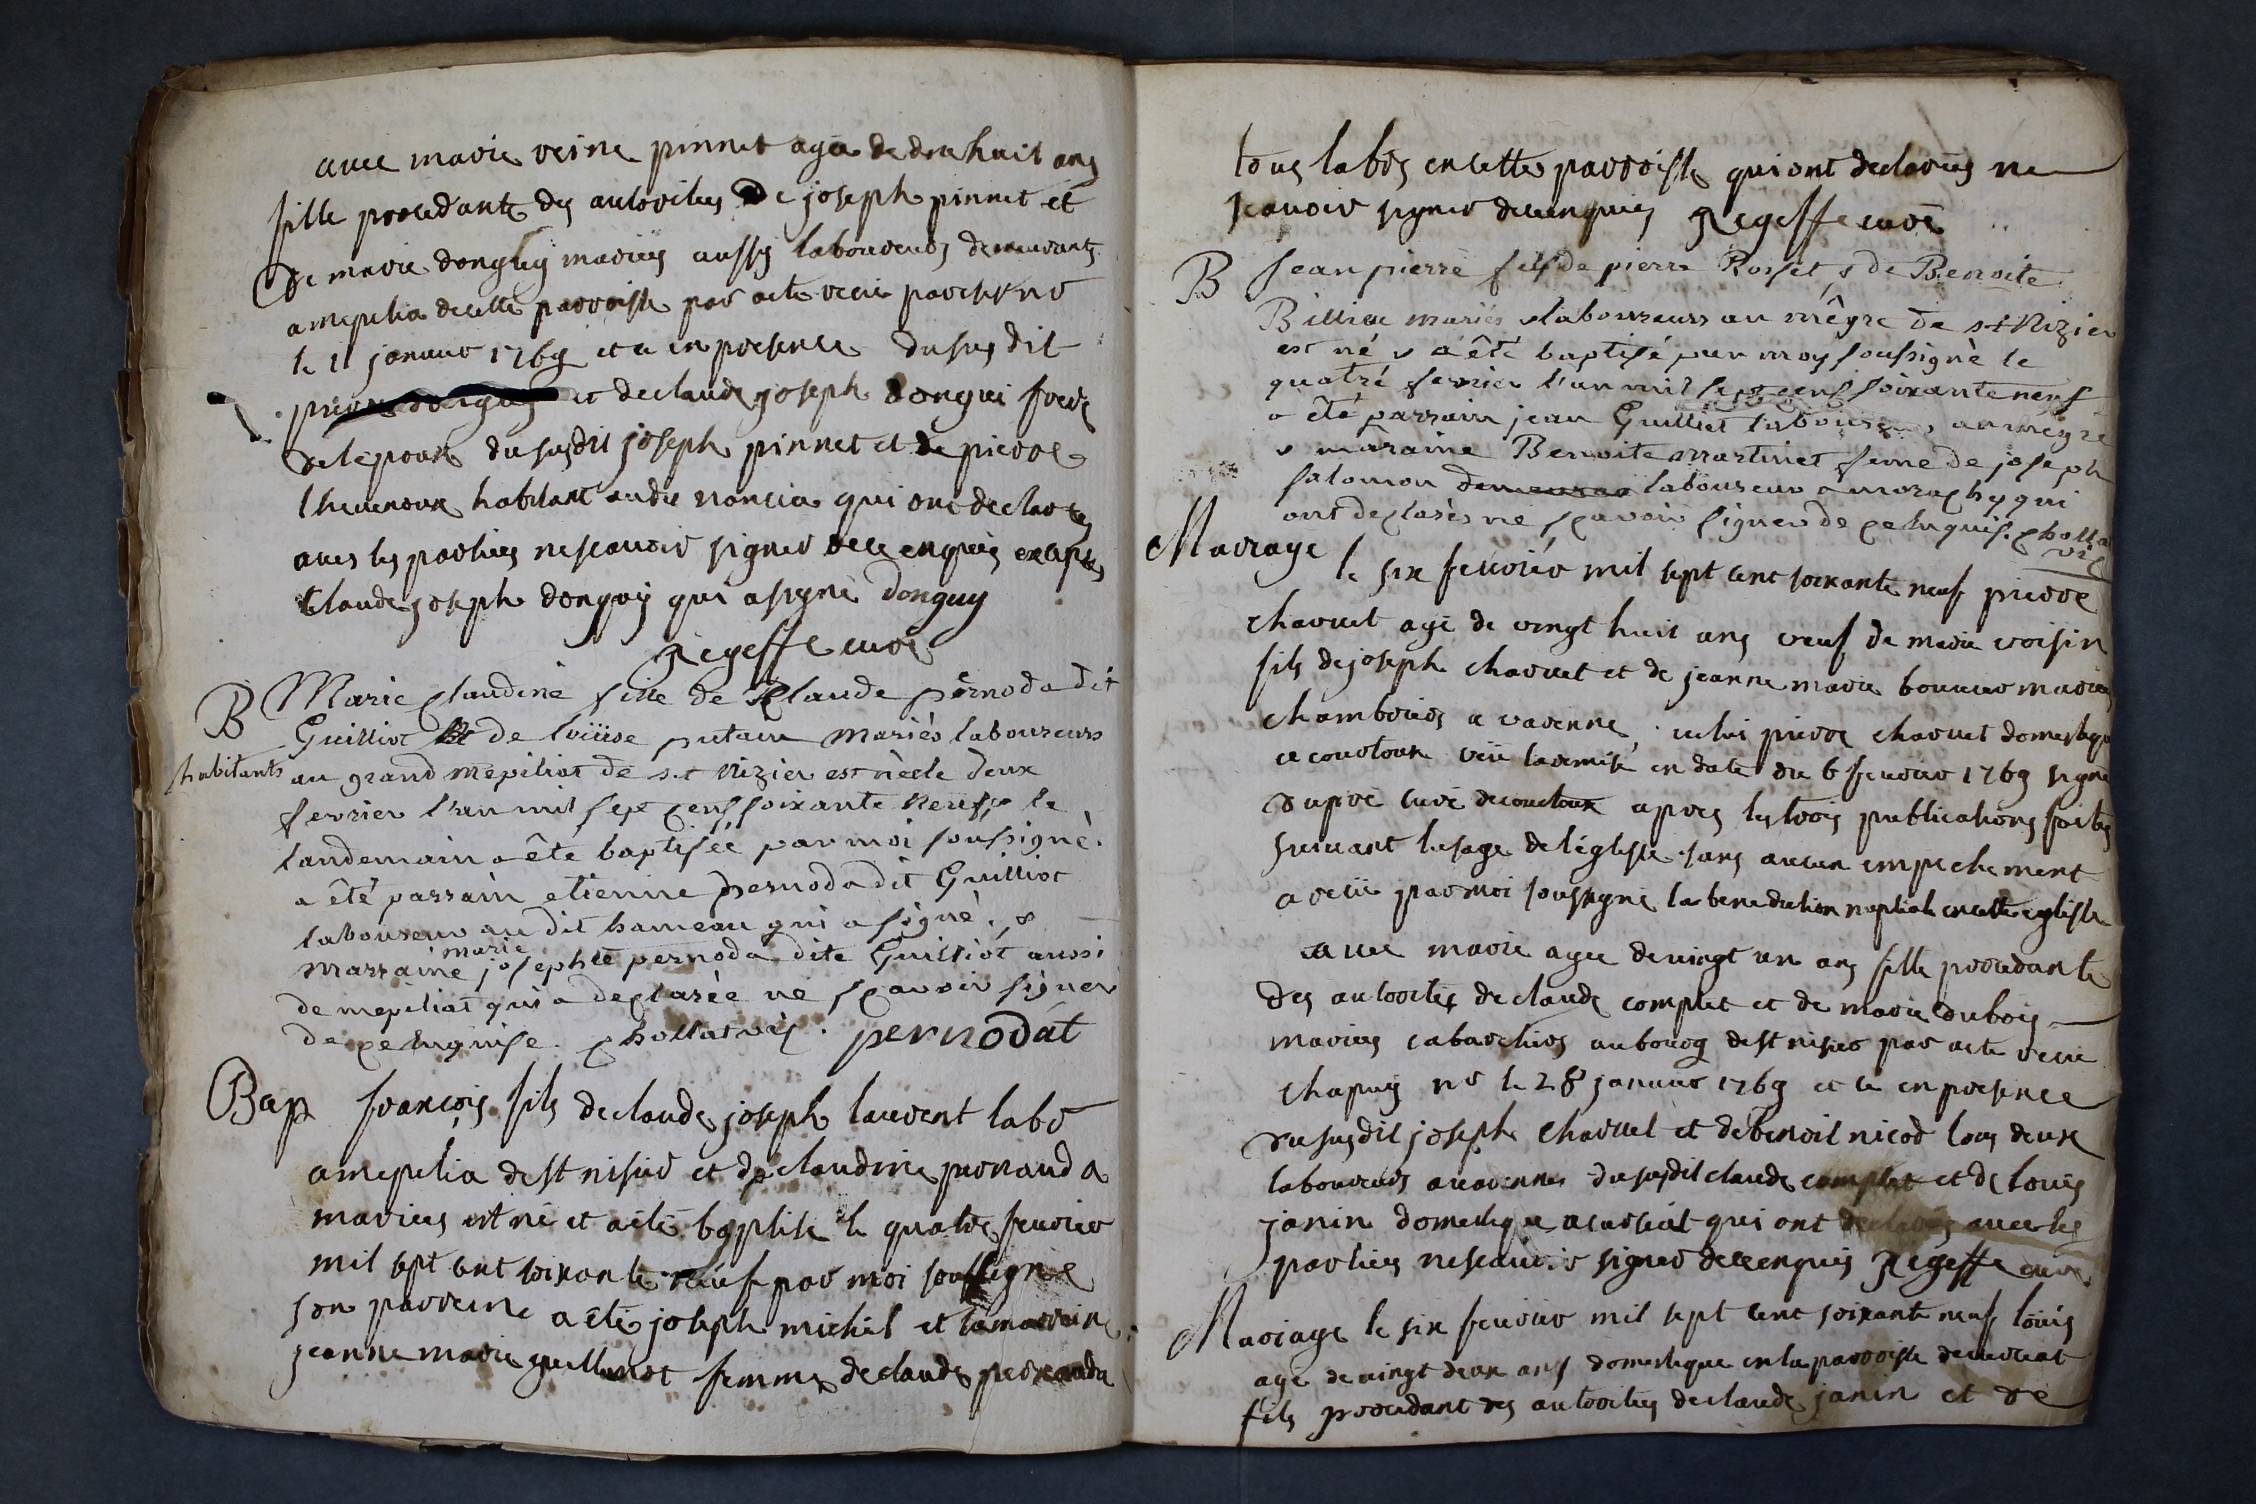 avec marie reine pinnet agée de dix huit ans
fille procedante des autorites de joseph pinnet et
de marie donguy mariés aussy laboureurs demeurants
a mepelia de cette parroisse par acte recu par
le 11 janvier 1769 et ce en presence du susdit
et de claude joseph dongui frere
de lepouse du susdit joseph pinnet et de pierre
thevenoux habitant audit nancia qui ont declares
avec les parties ne scavoir signer de ce enquis excepté
Claude joseph donguy qui a signé donguy
Regeffe curé
B Marie Claudine fille de Claude pernoda dit
Guilliot et de loüise putau mariés laboureurs
habitants au grand mepiliat de st Nizier est née le deux
fevrier l'an mil sept cens soixante neuf & le
landemain a êté baptisée par moi soussigné.
a êté parrain etienne pernoda dit Guilliot
laboureur au dit hameau qui a signé. &
marie
marraine josephte pernoda dite Guilliot aussi
de mepiliat qui a declarée ne scavoir signer
de ce enquise. chollat vic. pernodat
Bap francois fils de claude joseph laurent labr
a mepelia de st nisier et de claudine pernanda
mariés est né et a eté baptisé le quatre fevrier
mil sept cent soixante neuf par moi soussigné
son parrein a êté joseph michel et la marraine
jeanne marie guillimot femme de claude pernanda
tous labrs en cette parroisse qui ont declarés ne
scavoir signer de ce enquis Regeffe curé
B Jean pierre fils de pierre Rosset & de Benoite
Billiau mariés laboureurs au mêgre de st Nizier
est né & a êté baptisé par moy soussigné le
quatre fevrier l'an mil sept cens soixante neuf
a êté parrain jean Guilliet laboureur au mégre
& maraine Benoite martinet feme de joseph
salomon laboureur a marachy qui
ont declarés ne scavoir signer de ce enquis. chollat
vic
Mariage le six fevrier mil sept cent soixante neuf pierre
charvet agé de vingt huit ans veuf de marie voisin
fils de joseph charvet et de jeanne marie bouvier mariés
chambriers a varenne, celui pierre charvet domestique
a courtoux veü la remise en date du 6 fevrier 1769 signé
dupré curé de courtoux apres les trois publications faites
suivant lusage de léglisse sans aucun empechement
a recüe par moi soussigné la benediction nuptiale en cette eglisse
avec marie agée de vingt un ans fille procedante
des autorités de claude complet et de marie dubois
mariés cabarchiers au bourg de st nisier par acte recu
chapuy nre le 28 janvier 1769 et ce en presence
du susdit joseph charvet et de benoit nicod tous deux
laboureurs a varennes du susdit claude complet et de louis
janin domestique a curciat qui ont declarés avec les
parties ne scavoir signer de ce enquis Regeffe curé
Mariage le six fevrier mil sept cent soixante neuf loüis
agé de vingt deux ans domestique en la parroisse de curciat
fils procedant des autorites de claude janin et de